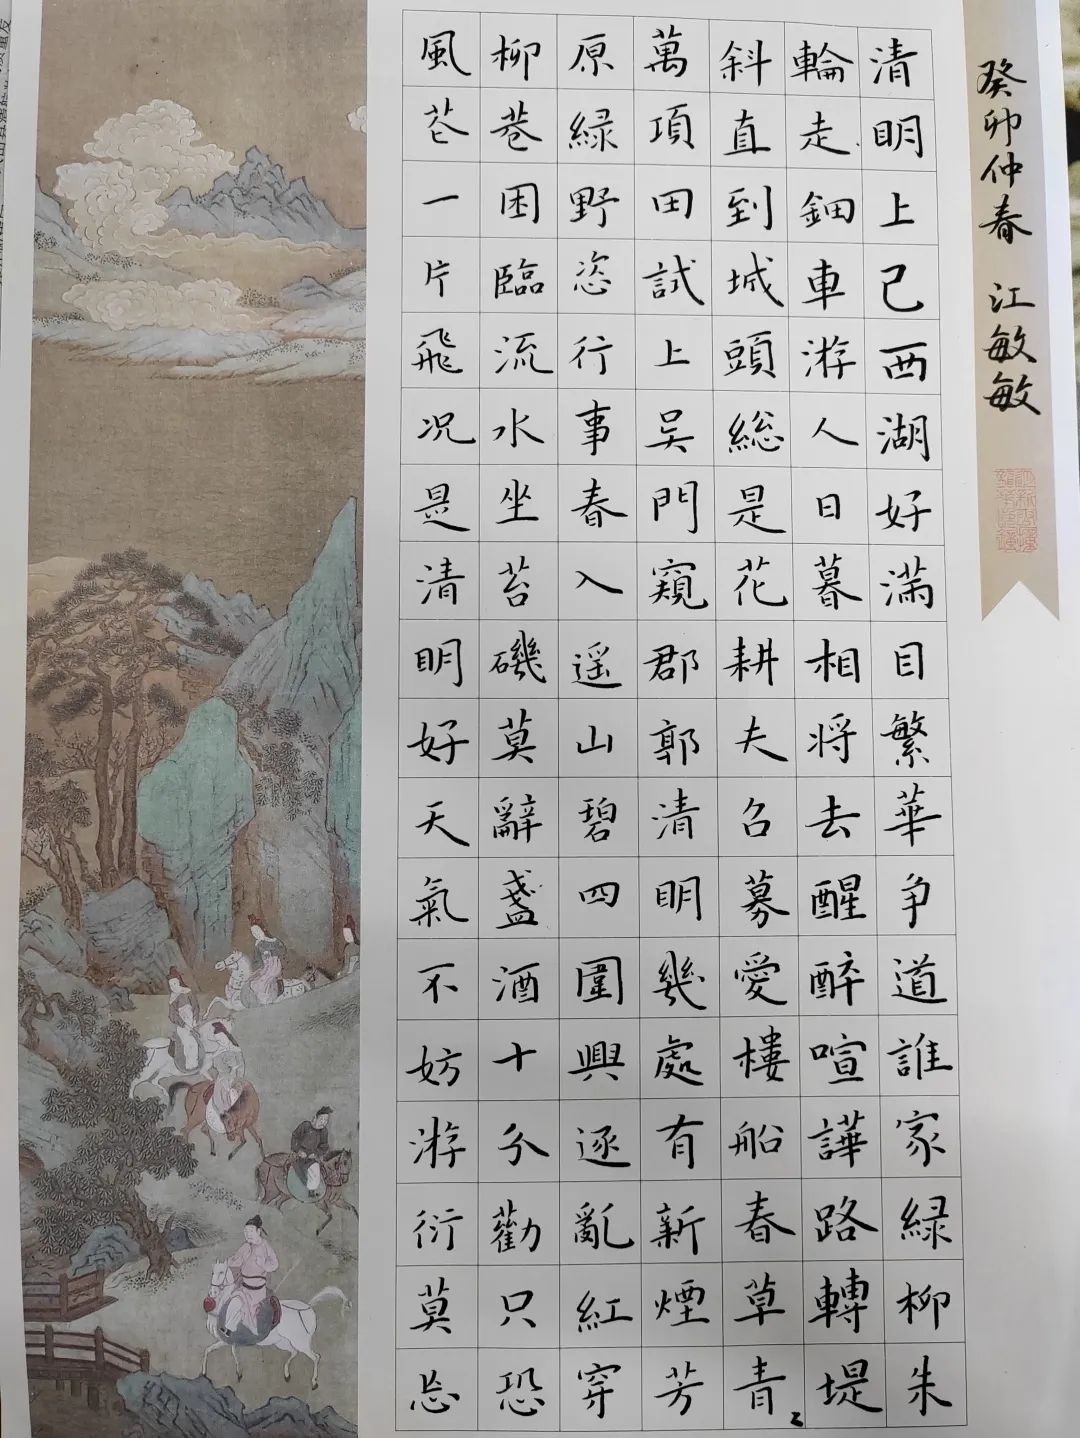 癸卯仲春 江敏敏
清明上己西湖好滿目繁華争道誰家緑柳朱
輪走鈿車游人日暮相將去醒醉喧譁路轉堤
斜直到城頭総是花耕夫召募愛樓船春草青
萬項田試上吴門窺郡郭清明幾處有新煙芳
原緑野恣行事春入遥山碧四圍興逐亂紅穿
柳巷困臨流水坐苔磯莫辭盞酒十分勸只恐
風花一片飛况是清明好天氣不妨游衍莫忘